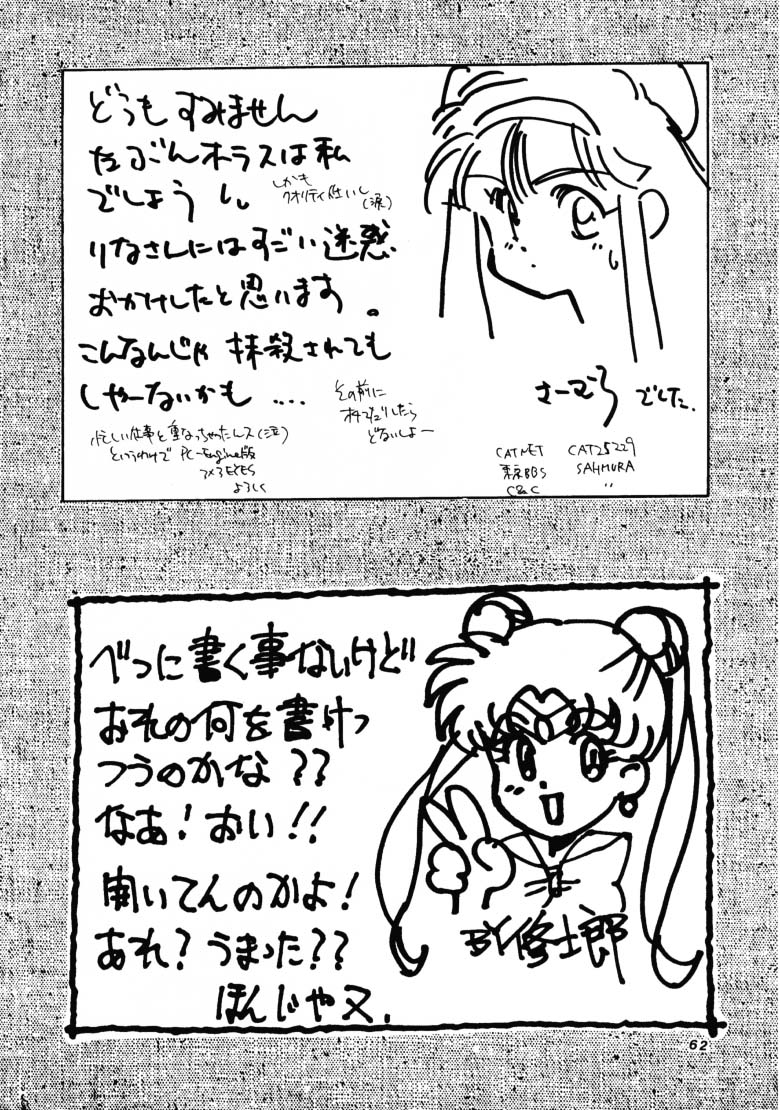 どうもすみません
たぶんホラスは私
でしょう
しかも
クオリティ低いし
(涙)
りなさんにはすごい迷惑
おかけしたと思います。
こんなんじゃ 抹殺されても
しゃーないかも ‥‥
その前に
どないしよー
忙しい仕事と重なっちゃったんス(泣)
というわけで PC-Engine版
3×3EYES
よろしく
さーむら でした.
CATNET CAT25229
東京BBS SAHMURA
C&C 〃
べつに書く事ないけど
おれの何を書けっ
つうのかな??
なあ!おい!!
聞いてんのかよ!
あれ?うまった??
ほんじゃ又.
BY修士郎
62